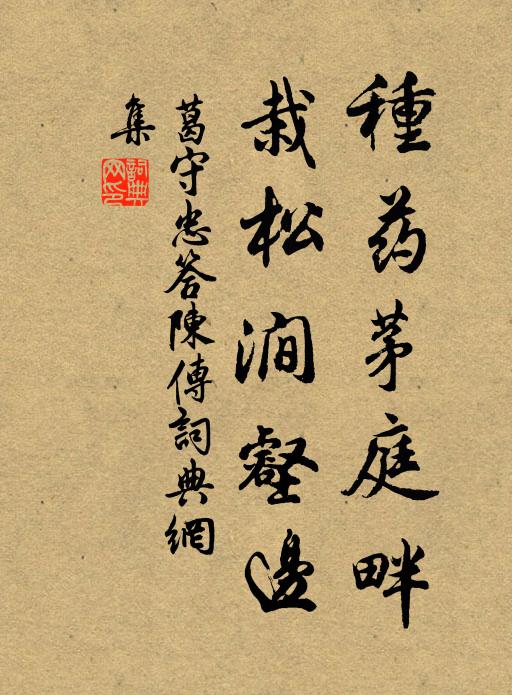 種药茅庭畔
栽松澗壑邊
葛守忠答陳傳詞典網
集
詞典
网印